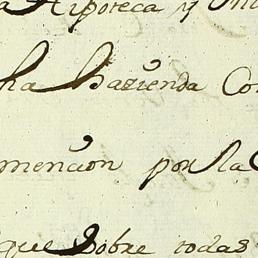 a Hipoteca y
ha Hazienda Co
mencion por la
que Sobre todas